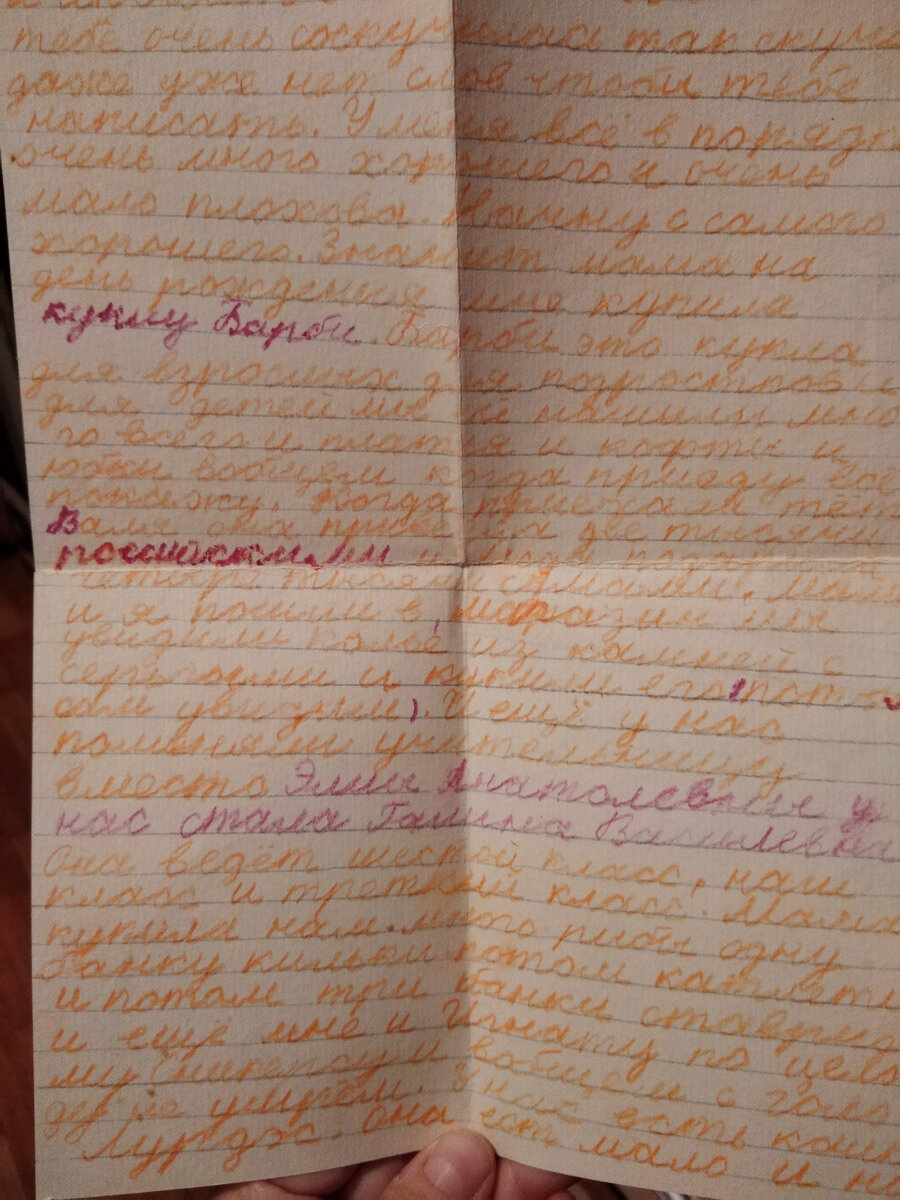 тебе очень соскучилась так скучаю
даже уже нет слов чтобы тебе
написать. У меня всё в порядке
очень много хорошего и очень
мало плохова. Начну с самого
хорошего. Значит мама на
день рождения мне купила
куклу Барби. Барби это кукла
для взрослых для подростков и
для детей мы ей нашили мно
го всего и платья и кофты и
юбки вобщем когда приеду всё
покажу. Когда приехала тётя
Валя она две тысячи
российскими и
четыре тысячи сумалями. Мама
и я пошли в магазин мы
увидили кольё из камней с
серьгами и купили его потом
сам увидиш). И ещё у нас
поменяли учительницу
вместо Элии Анатолевны у
нас стала Галина Василевна
Она ведёт шестой класс, наш
класс и третий класс. Мама
купила нам много рыбы одну
банку кильки потом катлеты
и потом три банки ставриды
и ещё мне и Игнату по цело
му сникерсу и вобщем с голо
ду не умрём. У нас есть кошка
Лурдэс. Она ест мало и не